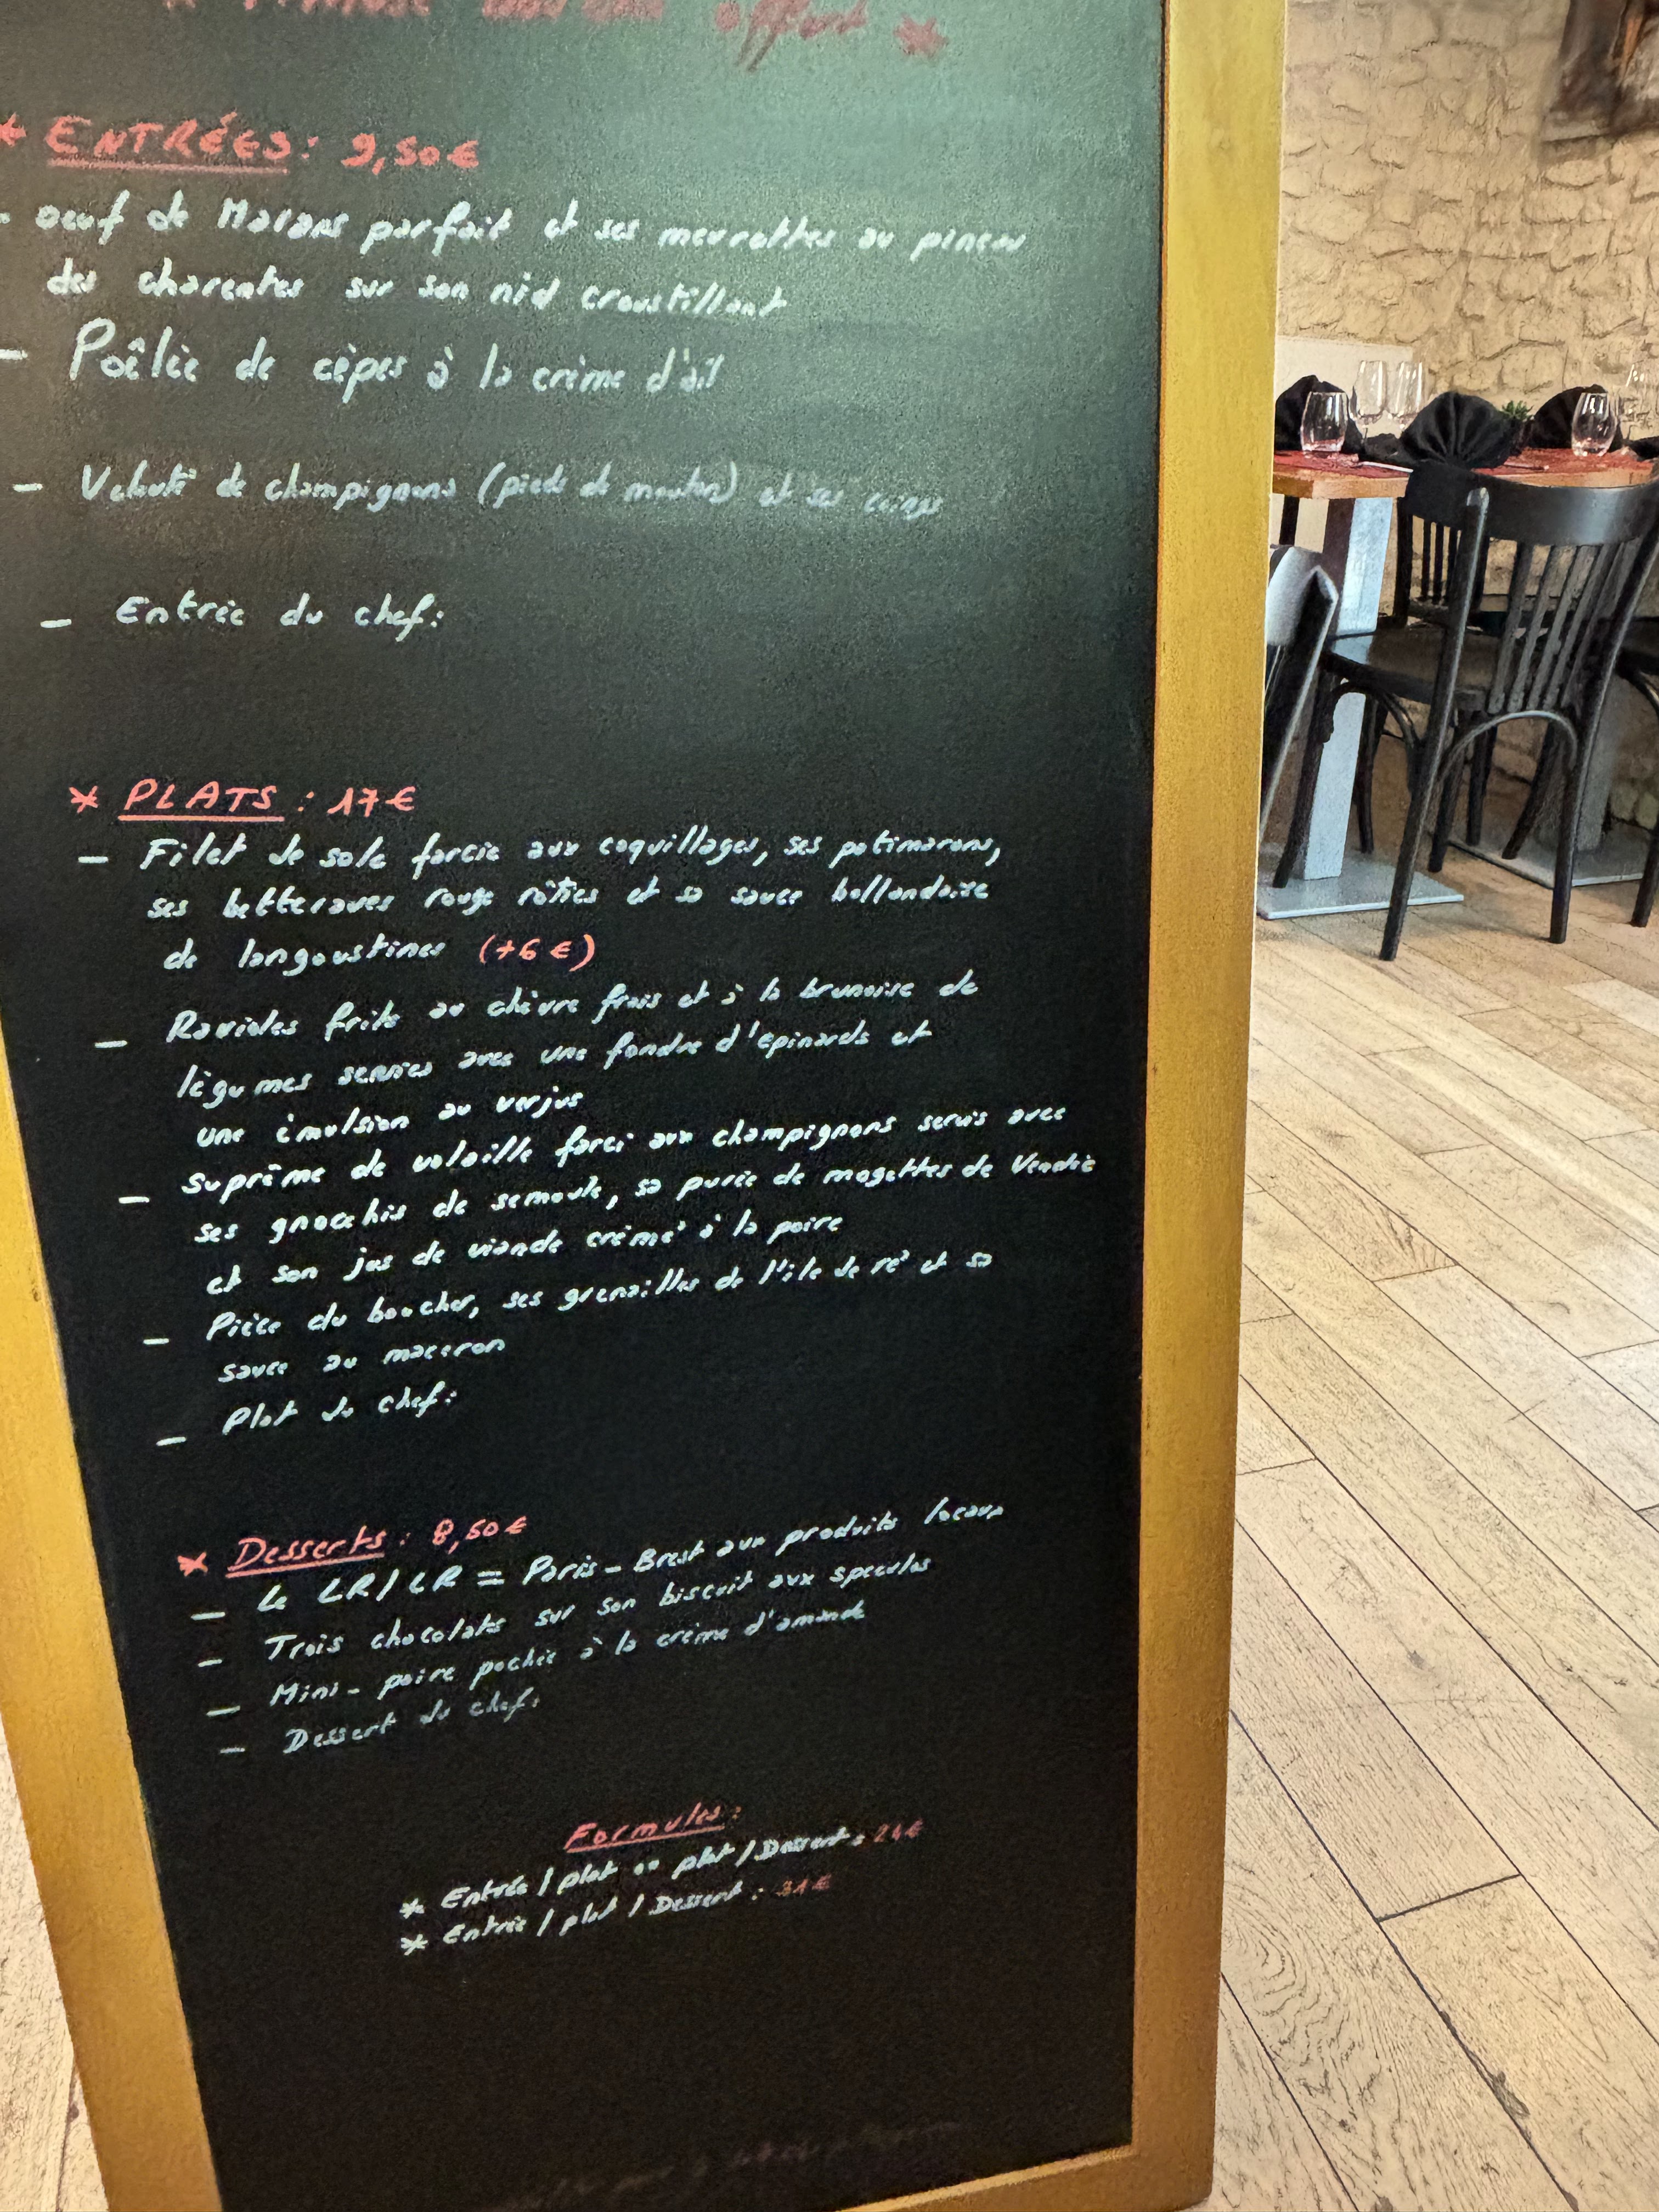 offert *
* ENTRÉES : 9,50€
- oeuf de Marans parfait et ses meurettes au pineau
des charentes sur son nid croustillant
- Poêlée de cèpes à la crème d'ail
- Velouté de champignons (pieds de mouton) et ses coings
- Entrée du chef:
* PLATS : 17€
- Filet de sole farcie aux coquillages, ses potimarons,
ses betteraves rouge rôties et sa sauce hollandaise
de langoustines (+6€)
- Ravioles frits au chèvre frais et à la brunoise de
légumes servies avec une fondue d'épinards et
une émulsion au verjus
- Suprême de volaille farci aux champignons servis avec
ses gnocchis de semoule, sa purée de mogettes de Vendée
et son jus de viande crémé à la poire
- Pièce du boucher, ses grenailles de l'île de ré et sa
sauce au maceron
- Plat du chef:
* Desserts : 8,50€
- Le LR/LR = Paris-Brest aux produits locaux
- Trois chocolats sur son biscuit aux speculos
- Mini-poire pochée à la crème d'amande
- Dessert du chef:
Formules:
* Entrée / plat ou plat / Dessert : 24€
* Entrée / plat / Dessert : 31€